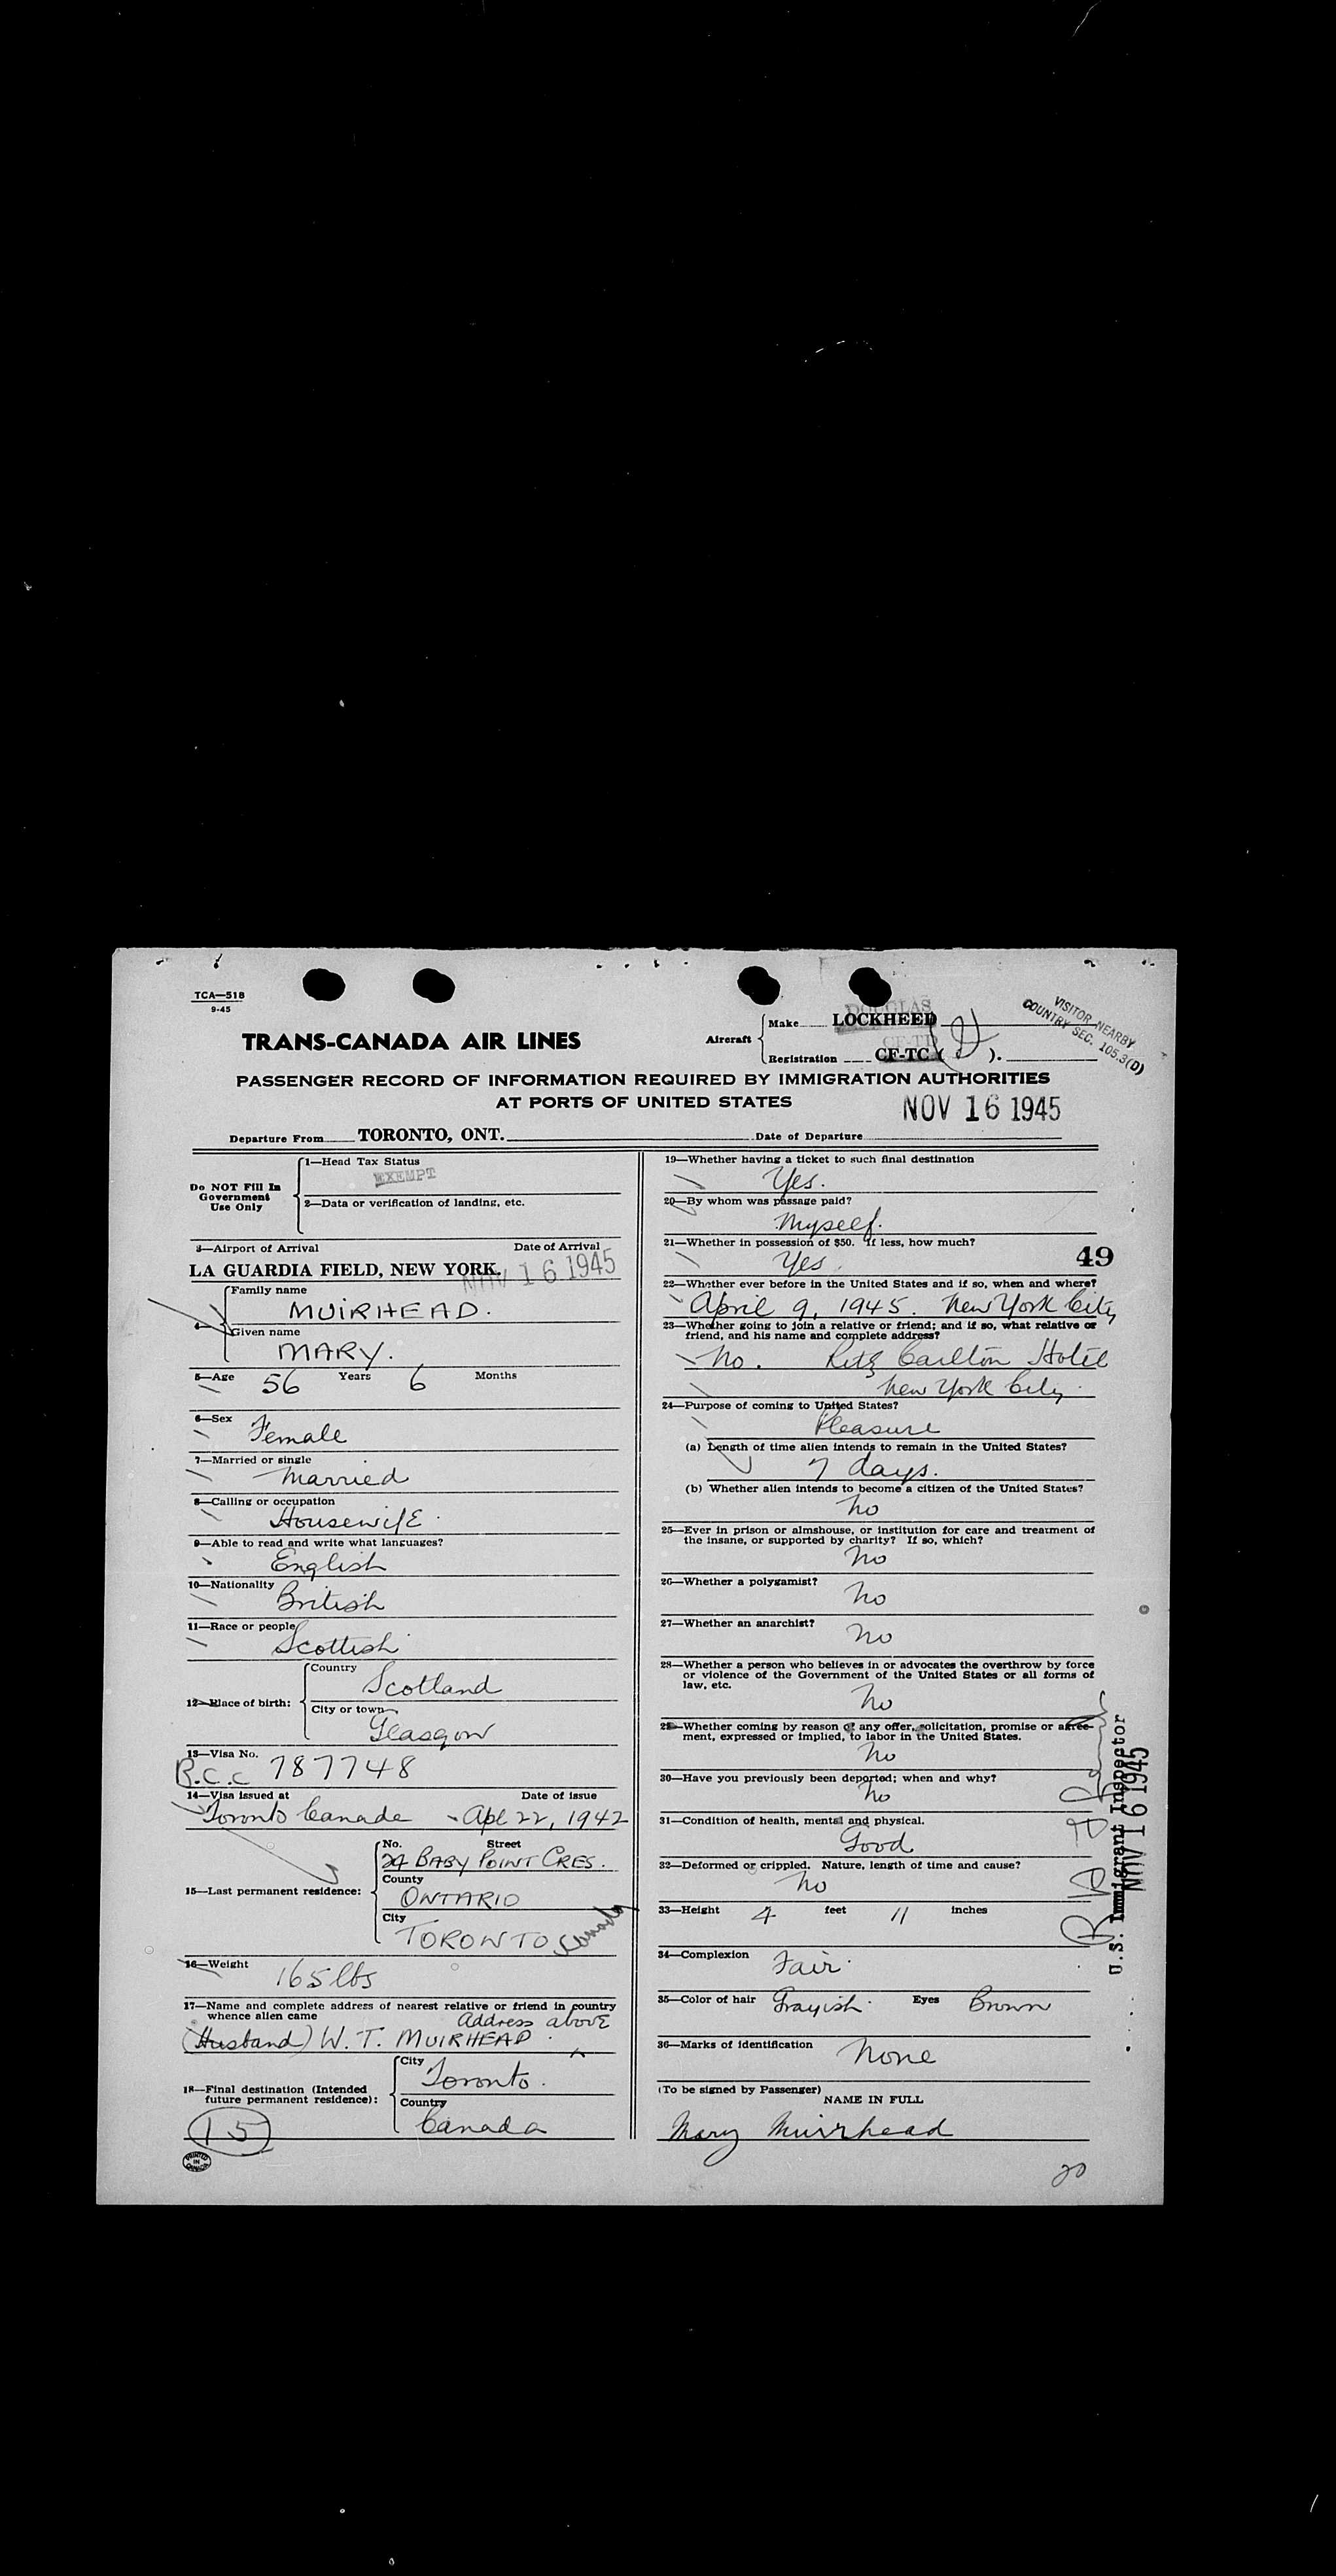 TCA—518
9-45
TRANS-CANADA AIR LINES
Aircraft
Make DOUGLAS LOCKHEED
Registration CF-TD CF-TC ( ).
VISITOR NEARBY
COUNTRY SEC. 105.3(D)
PASSENGER RECORD OF INFORMATION REQUIRED BY IMMIGRATION AUTHORITIES
AT PORTS OF UNITED STATES
NOV 16 1945
Departure From TORONTO, ONT.
Date of Departure
Do NOT Fill In
Government
Use Only
1—Head Tax Status
EXEMPT
2—Data or verification of landing, etc.
3—Airport of Arrival Date of Arrival
LA GUARDIA FIELD, NEW YORK. NOV 16 1945
4—
Family name
MUIRHEAD.
Given name
MARY.
5—Age 56 Years 6 Months
6—Sex
Female
7—Married or single
Married
8—Calling or occupation
Housewife.
9—Able to read and write what languages?
English
10—Nationality
British
11—Race or people
Scottish
12—Place of birth:
Country
Scotland
City or town
Glasgow
13—Visa No.
R.C.C 787748
14—Visa issued at Date of issue
Toronto Canada - Apl 22, 1942
15—Last permanent residence:
No. Street
24 BABY POINT CRES.
County
ONTARIO
City
TORONTO Canada
16—Weight
165 lbs
17—Name and complete address of nearest relative or friend in country
whence alien came
Address above
(Husband) W. T. MUIRHEAD.
18—Final destination (Intended
future permanent residence):
City
Toronto.
Country
Canada
15
PRINTED
IN
CANADA
19—Whether having a ticket to such final destination
Yes.
20—By whom was passage paid?
Myself.
21—Whether in possession of $50. If less, how much?
Yes.
49
22—Whether ever before in the United States and if so, when and where?
April 9, 1945. New York City
23—Whether going to join a relative or friend; and if so, what relative or
friend, and his name and complete address?
No. Ritz Carlton Hotel
New York City.
24—Purpose of coming to United States?
Pleasure
(a) Length of time alien intends to remain in the United States?
7 days.
(b) Whether alien intends to become a citizen of the United States?
No
25—Ever in prison or almshouse, or institution for care and treatment of
the insane, or supported by charity? If so, which?
No
26—Whether a polygamist?
No
27—Whether an anarchist?
No
28—Whether a person who believes in or advocates the overthrow by force
or violence of the Government of the United States or all forms of
law, etc.
No
29—Whether coming by reason of any offer, solicitation, promise or agree-
ment, expressed or implied, to labor in the United States.
No
30—Have you previously been deported; when and why?
No
31—Condition of health, mental and physical.
Good
32—Deformed or crippled. Nature, length of time and cause?
No
33—Height 4 feet 11 inches
34—Complexion
Fair.
35—Color of hair Grayish. Eyes Brown
36—Marks of identification
None
(To be signed by Passenger)
NAME IN FULL
Mary Muirhead
20
U.S. Immigrant Inspector
NOV 16 1945